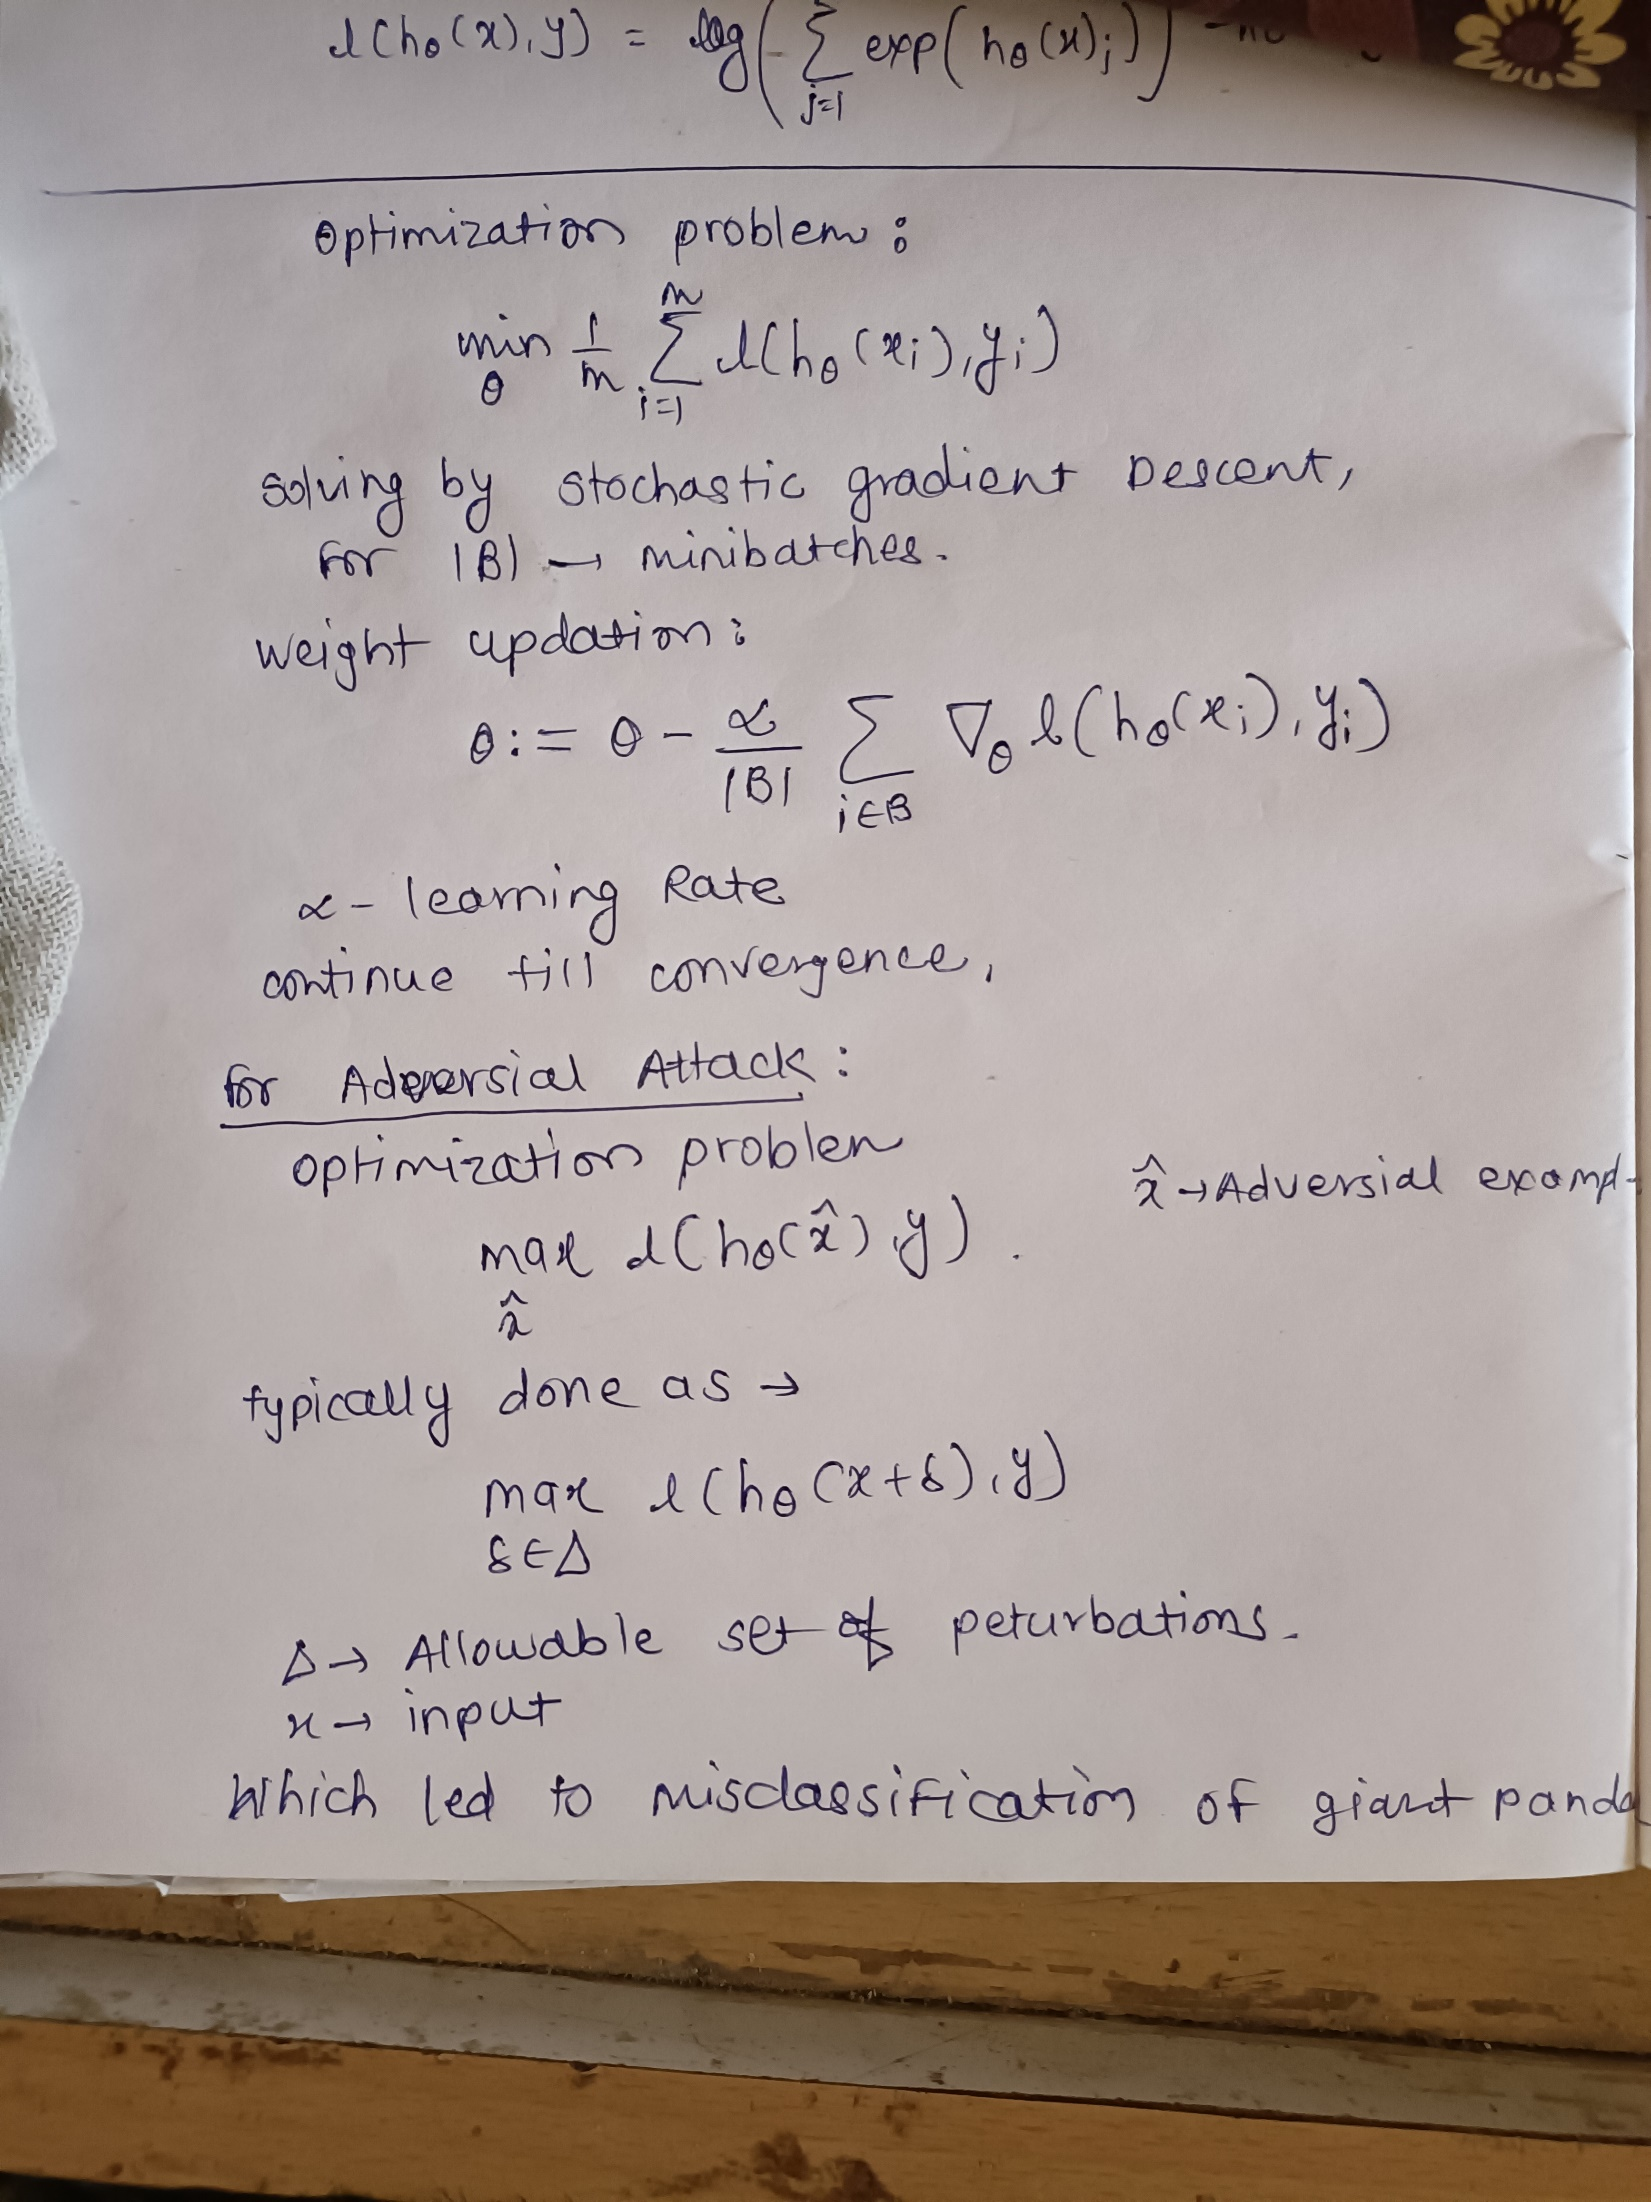 l(hθ(x), y) = log( Σ j=1 exp( hθ(x)j ) )
Optimization problem :
min θ 1/m Σ i=1 m l(hθ(xi), yi)
solving by stochastic gradient Descent,
for |B| → minibatches.
weight updation :
θ := θ - α/|B| Σ i∈B ∇θ l(hθ(xi), yi)
α - learning Rate
continue till convergence,
for Adversial Attack :
optimization problem
x̂ → Adversial exampl-
max x̂ l(hθ(x̂), y).
typically done as →
max δ∈Δ l(hθ(x+δ), y)
Δ → Allowable set of peturbations.
x → input
Which led to misclassification of giant panda